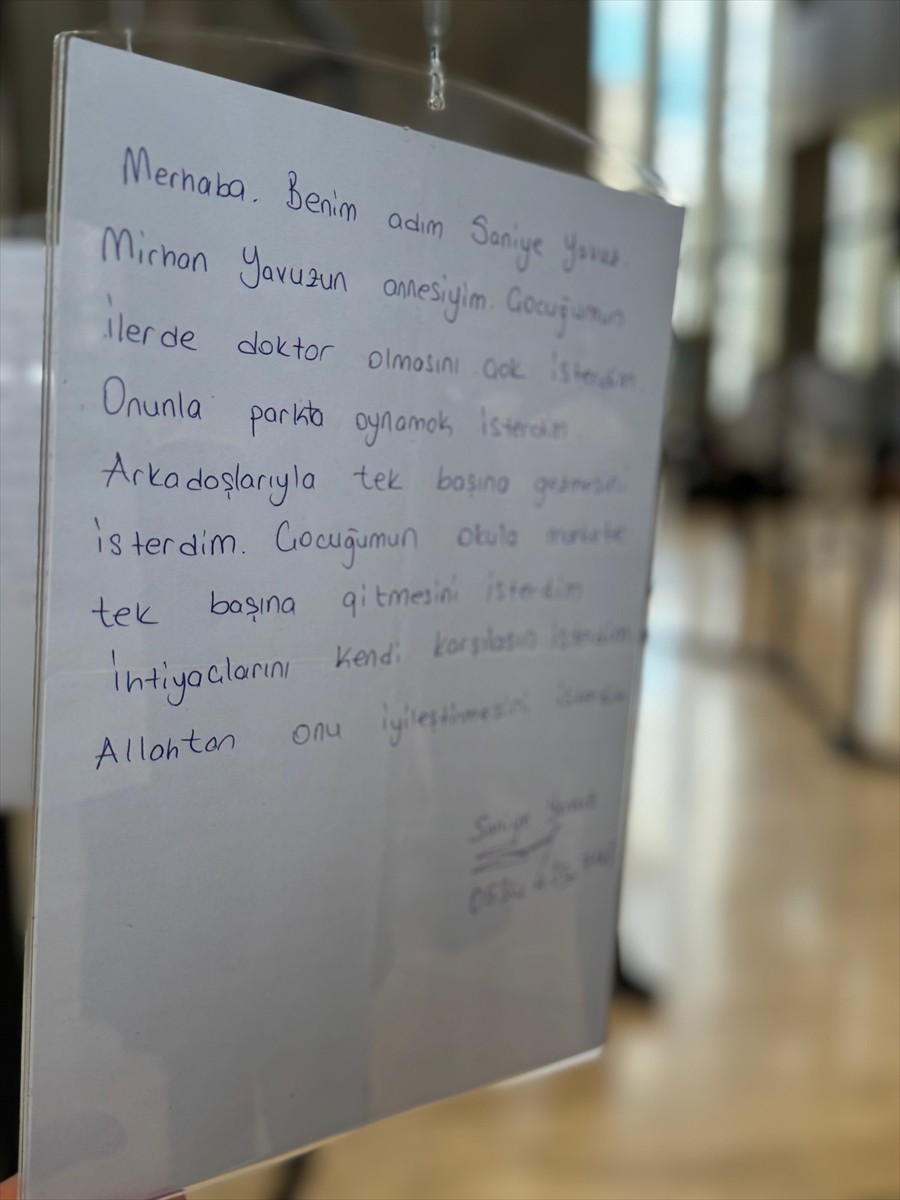 Merhaba. Benim adım Saniye Yavuz.
Mirhan Yavuzun annesiyim. Çocuğumun
ilerde doktor olmasını çok isterdim
Onunla parkta oynamak isterdim
Arkadaşlarıyla tek başına gezmesini
isterdim. Çocuğumun okula markete
tek başına gitmesini isterdim
İhtiyaçlarını kendi karşılasın isterdim
Allahtan onu iyileştirmesini
Saniye Yavuz